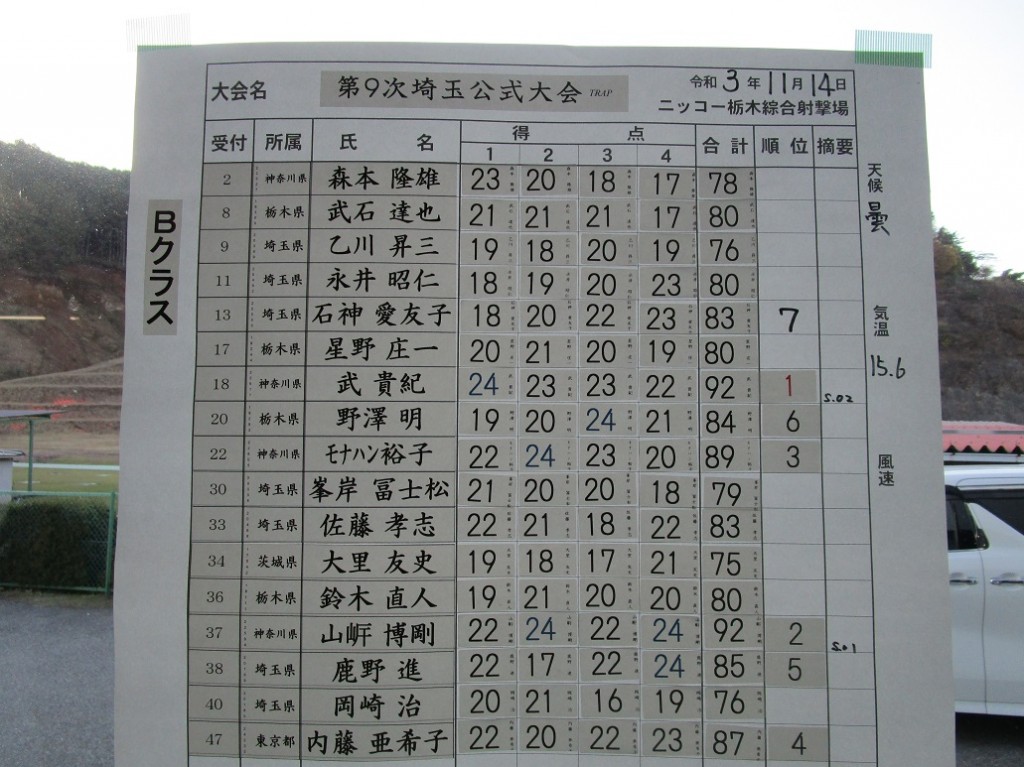 大会名 第9次埼玉公式大会 TRAP 令和3年11月14日
ニッコー栃木綜合射撃場
Bクラス
受付 所属 氏名 得点 合計 順位 摘要
1 2 3 4
2 神奈川県 森本 隆雄 23 20 18 17 78
8 栃木県 武石 達也 21 21 21 17 80
9 埼玉県 乙川 昇三 19 18 20 19 76
11 埼玉県 永井 昭仁 18 19 20 23 80
13 埼玉県 石神 愛友子 18 20 22 23 83 7
17 栃木県 星野 庄一 20 21 20 19 80
18 神奈川県 武 貴紀 24 23 23 22 92 1 S.02
20 栃木県 野澤 明 19 20 24 21 84 6
22 神奈川県 モナハン裕子 22 24 23 20 89 3
30 埼玉県 峯岸 冨士松 21 20 20 18 79
33 埼玉県 佐藤 孝志 22 21 18 22 83
34 茨城県 大里 友史 19 18 17 21 75
36 栃木県 鈴木 直人 19 21 20 20 80
37 神奈川県 山㟁 博剛 22 24 22 24 92 2 S.01
38 埼玉県 鹿野 進 22 17 22 24 85 5
40 埼玉県 岡崎 治 20 21 16 19 76
47 東京都 内藤 亜希子 22 20 22 23 87 4
天候
曇
気温
15.6
風速